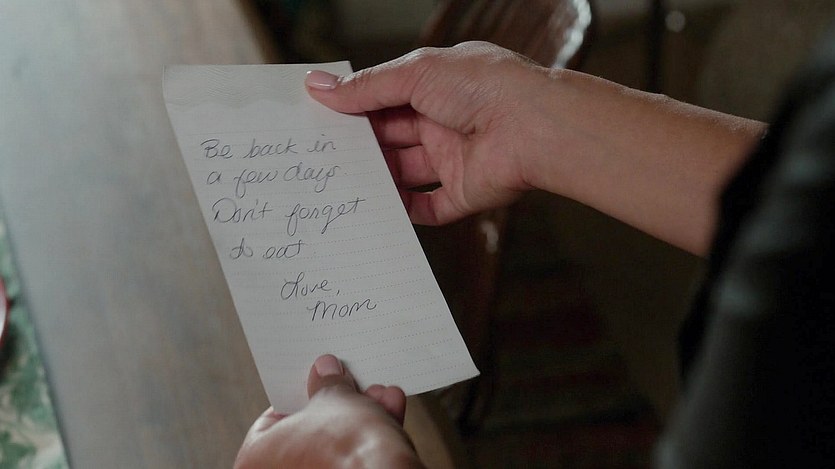 Be back in
a few days
Don't forget
to eat
Love,
Mom